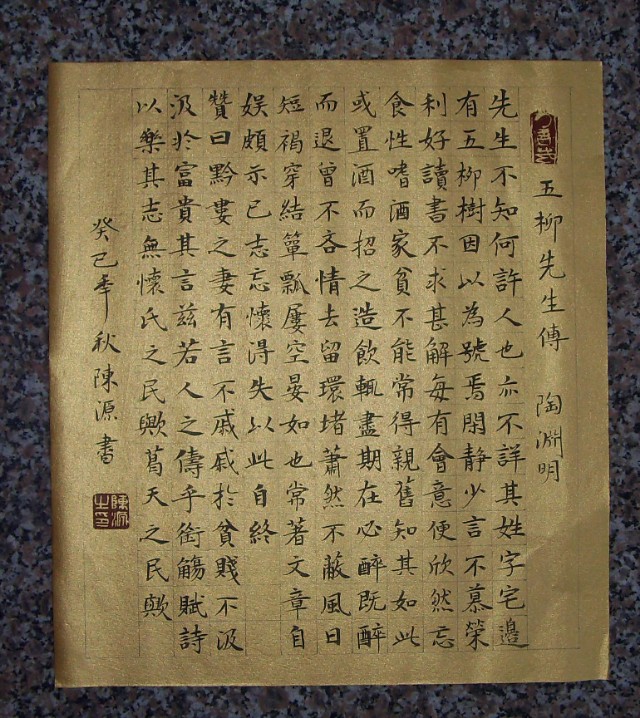 五柳先生傳 陶淵明
先生不知何許人也亦不詳其姓字宅邊
有五柳樹因以為號焉閑静少言不慕榮
利好讀書不求甚解每有會意便欣然忘
食性嗜酒家貧不能常得親舊知其如此
或置酒而招之造飲輒盡期在必醉既醉
而退曾不吝情去留環堵蕭然不蔽風日
短褐穿結簞瓢屢空晏如也常著文章自
娱頗示己志忘懷得失以此自終
贊曰黔婁之妻有言不戚戚於貧賤不汲
汲於富貴其言兹若人之儔乎銜觴賦詩
以樂其志無懷氏之民歟葛天之民歟
癸巳年秋陳源書
陳源之印